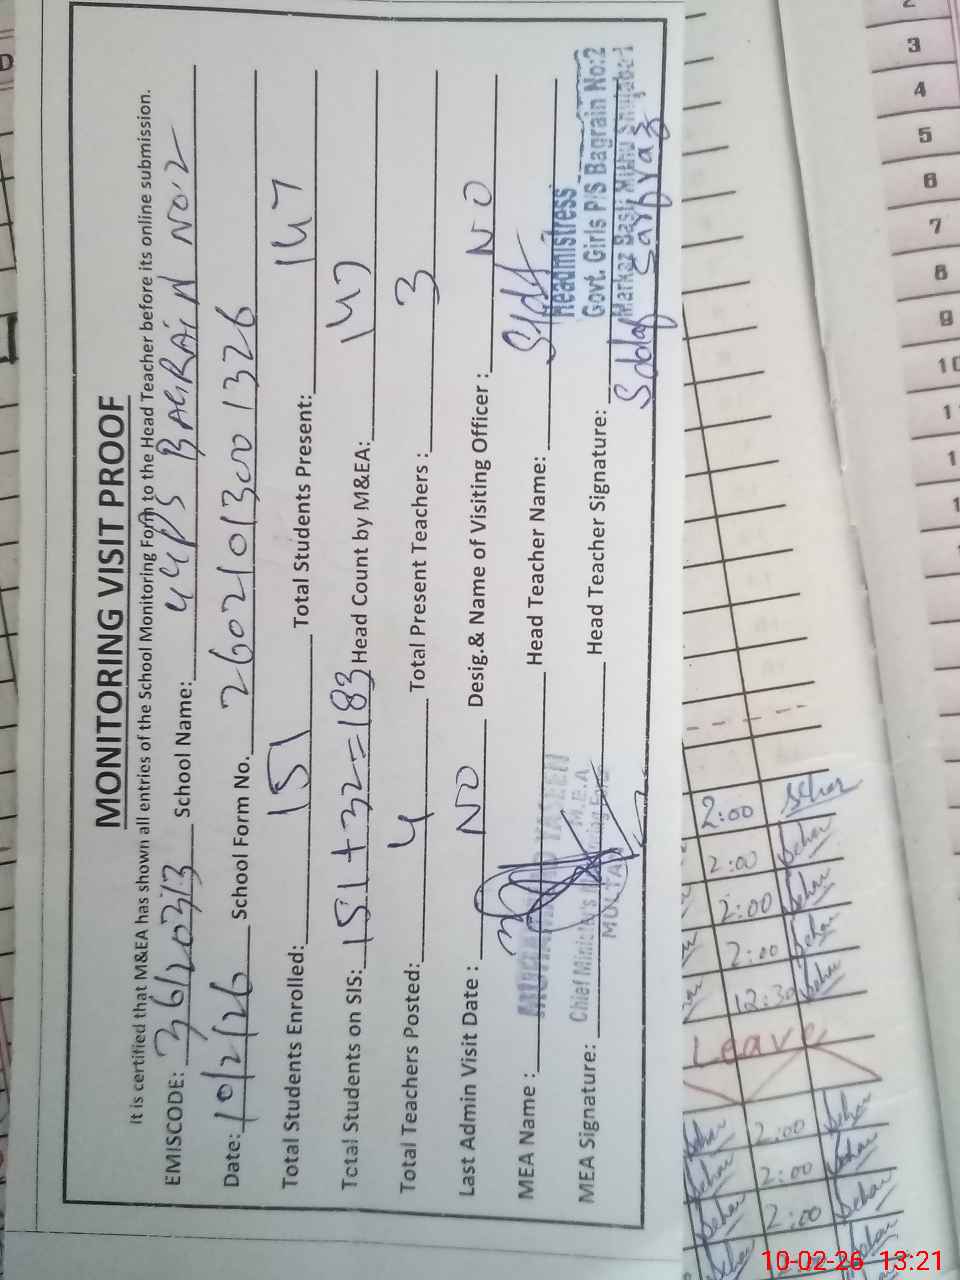 MONITORING VISIT PROOF
It is certified that M&EA has shown all entries of the School Monitoring Form to the Head Teacher before its online submission.
EMISCODE: 36120373 School Name: GGPS BAGRAIN NO.2
Date: 10/2/26 School Form No. 2602101300 1326
Total Students Enrolled: 151 Total Students Present: 147
Total Students on SIS: 151+32=183 Head Count by M&EA: 147
Total Teachers Posted: 4 Total Present Teachers: 3
Last Admin Visit Date: NO Desig.& Name of Visiting Officer: NO
MEA Name: MUHAMMAD YASEEN Head Teacher Name:
Headmistress
Govt. Girls P/S Bagrain No:2
Markaz Basti Mithu Shujabad
MEA Signature: Chief Minister's Monitoring Force Head Teacher Signature:
M.E.A
MULTAN
2:00
2:00
2:00
2:00
12:30
Leave
2:00
2:00
2:00
2
3
4
5
6
7
8
9
10
10-02-26 13:21